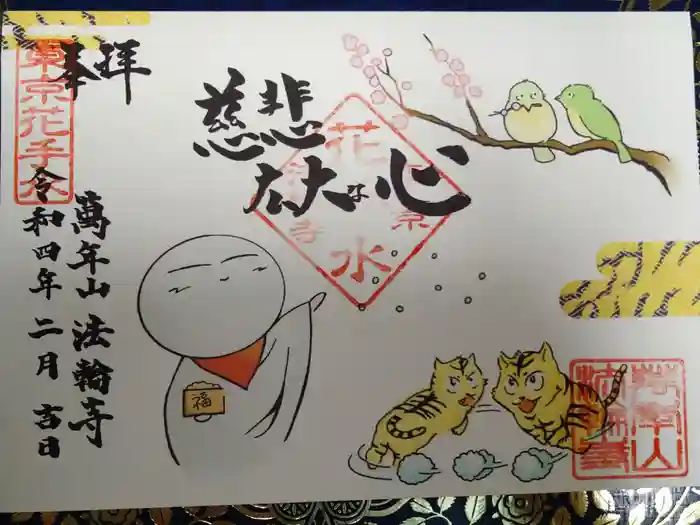 慈悲
広大な心
花
水
福
奉拝
東京花手水
萬年山 法輪寺
令和四年 二月 吉日